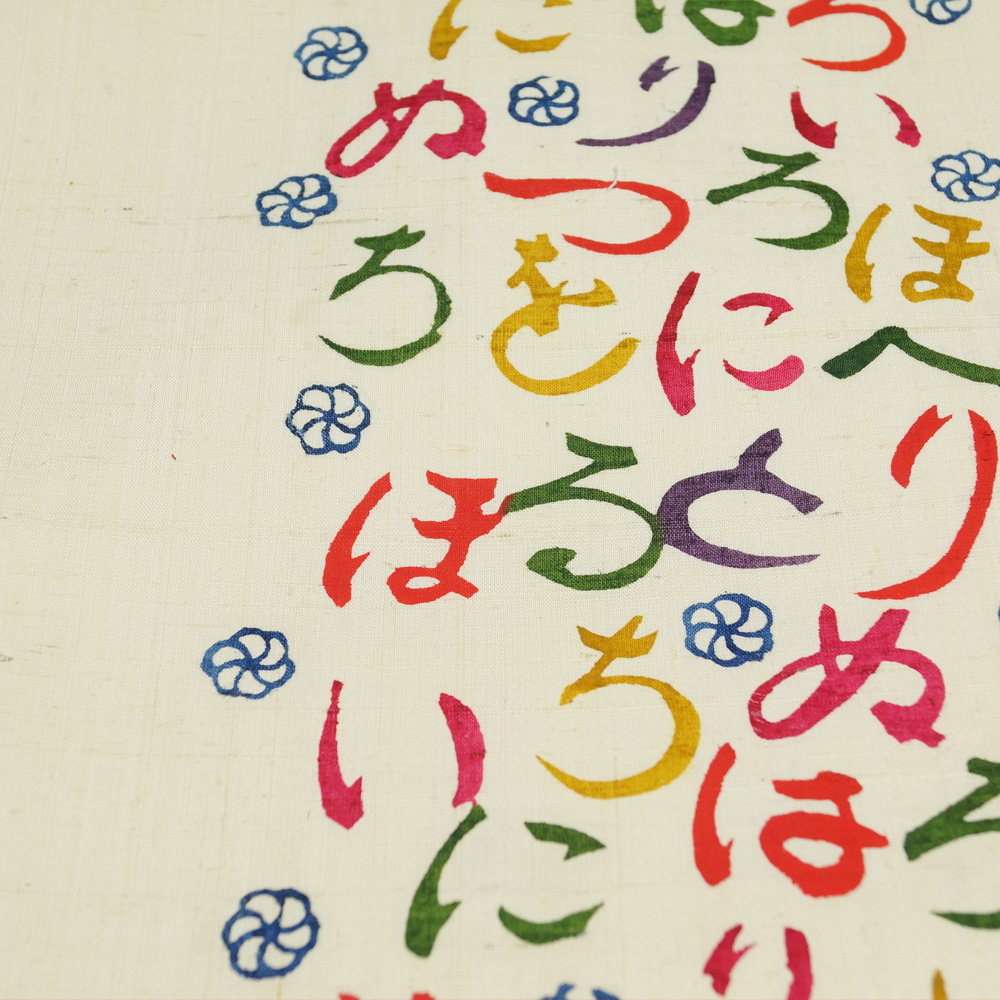 に
ぬ り い
つ ろ
ち を に ほ
へ
ほ る と り
ち ぬ
い は
に
り